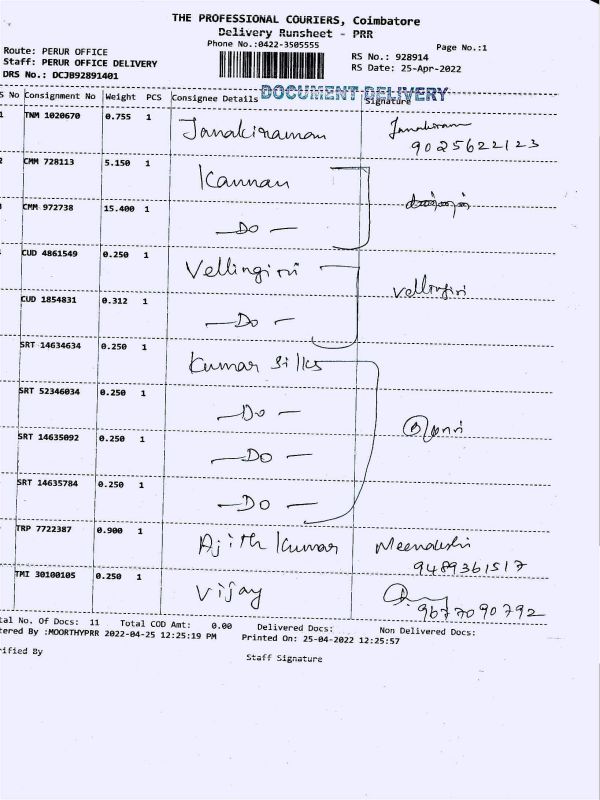 THE PROFESSIONAL COURIERS, Coimbatore
Delivery Runsheet - PRR
Phone No.:0422-3505555
Page No.:1
Route: PERUR OFFICE
RS No.: 928914
Staff: PERUR OFFICE DELIVERY
RS Date: 25-Apr-2022
DRS No.: DCJB92891401
DOCUMENT DELIVERY
S No Consignment No Weight PCS Consignee Details Signature
1 TNM 1020670 0.755 1 Janakiraman Janakiram
9025622123
2 CMM 728113 5.150 1 Kannan
CMM 972738 15.400 1 -Do-
CUD 4861549 0.250 1 Vellingiri vellingiri
CUD 1854831 0.312 1 -Do-
SRT 14634634 0.250 1 Kumar Silks
SRT 52346034 0.250 1 -Do-
SRT 14635092 0.250 1 -Do-
SRT 14635784 0.250 1 -Do-
TRP 7722387 0.900 1 Ajith Kumar
9489361517
TMI 30100105 0.250 1 Vijay
9677090792
tal No. Of Docs: 11 Total COD Amt: 0.00 Delivered Docs: Non Delivered Docs:
tered By :MOORTHYPRR 2022-04-25 12:25:19 PM Printed On: 25-04-2022 12:25:57
rified By
Staff Signature